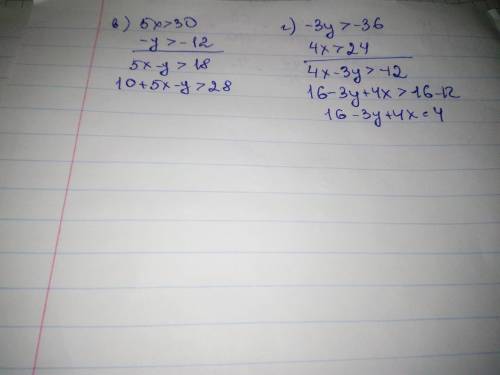 в) 5x>30
-y>-12
5x-y>18
10+5x-y>28
г) -3y>-36
4x>24
4x-3y>-12
16-3y+4x>16-12
16-3y+4x=4